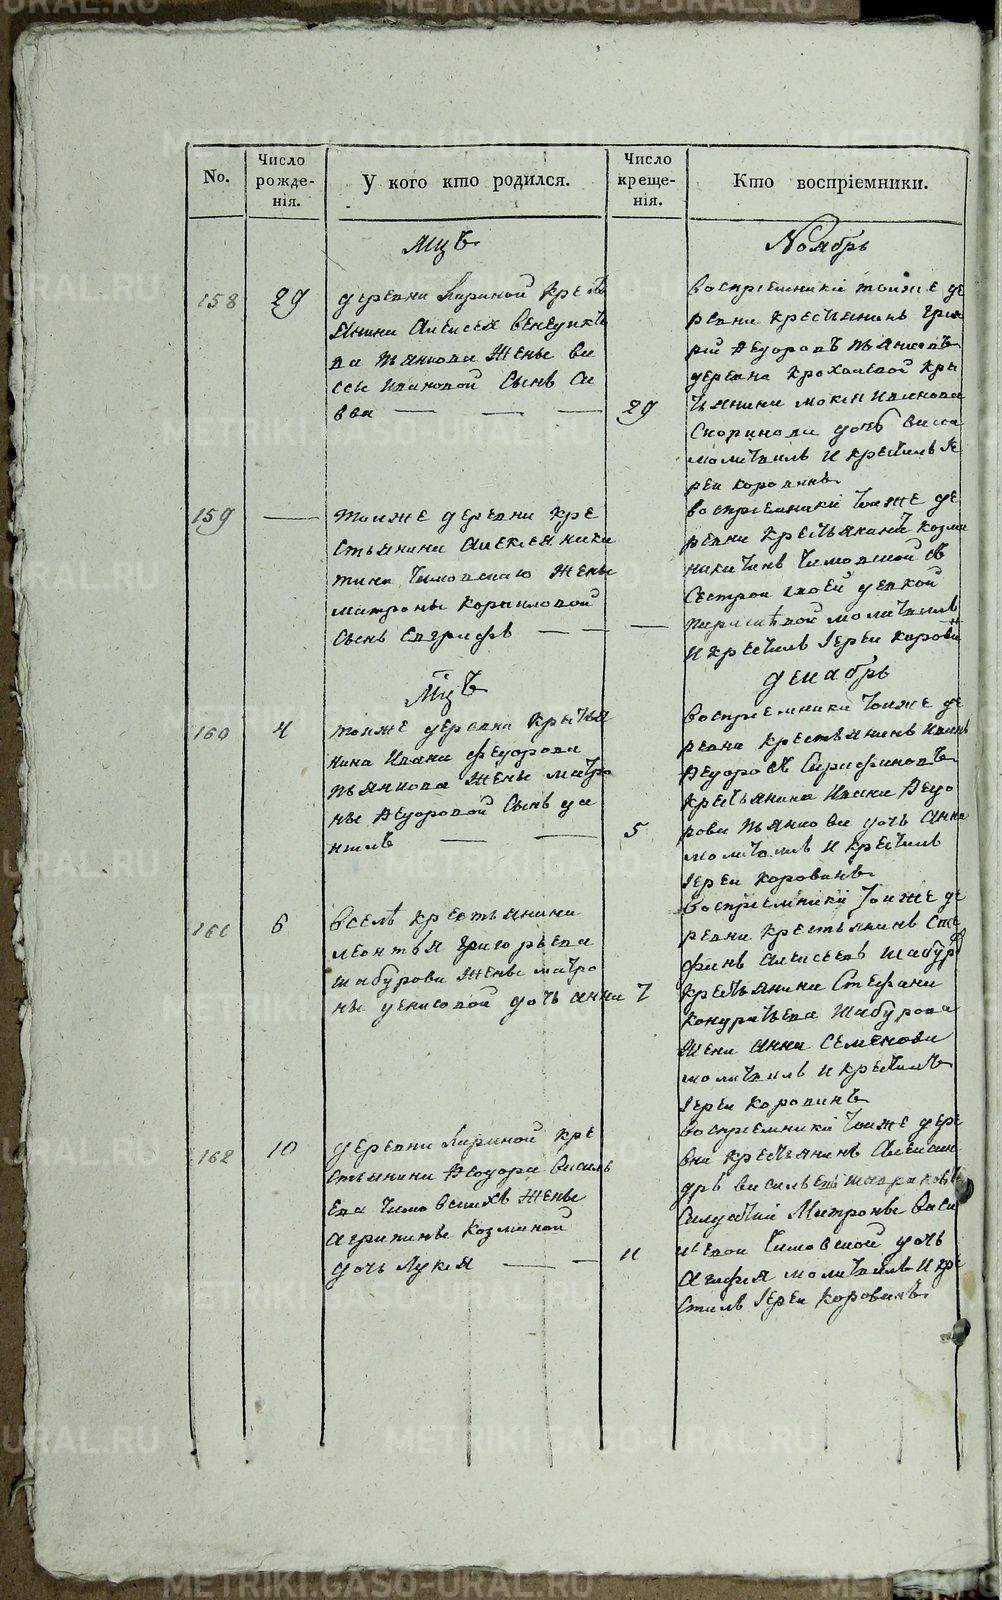 No.
Число рожде- нія.
У кого кто родился.
Число креще- нія.
Кто воспріемники.
Мцъ
Ноябрь
158
29
деревни Париной Крестъ
янина Алексея
ва Пьянкова жены Ва
ссы Ивановой Сынъ Са
вва
29
воспріемники тоиже де
ревни крестьянинъ Григо
рий Ѳедоровъ Пьянковъ
деревна Крохалевой Кры
тьянина Мокия Иванова
Скоринова дочь Васса
молитвилъ и крестилъ Іе
реи Коровинъ
159
тоиже деревни кре
стьянина Алексея Ники
тина жены
матроны Корниловой
Сынъ Евграфъ
воспріемники тоиже де
ревни крестьянинъ Козма
Никитинъ съ
сестрои своей девкой
молитвилъ
и крестилъ Іереи Коровин
Мцъ
декабрь
160
4
тоиже деревни крытья
нина Ивана Федорова
Пьянкова жены матро
ны Ѳедоровой Сынъ да
нилъ
5
воспріемники тоиже де
ревни крестьянинъ Иванъ
Ѳедоровъ
крестьянина Ивана Ѳедо
рова Пьянкова дочь Анна
молитвилъ и крестилъ
Іереи Коровинъ
161
6
вселѣ крестьянина
леонтья григорьева
шабурова жены матро
ны денисовой дочь анна
7
воспріемники тоиже де
ревни крестьянинъ Сте
фанъ Алексеевъ шабуро
крестьянина Стефана
Кондратьева Шабурова
жена Анна Семенова
молитвилъ и крестилъ
Іереи Коровинъ
162
10
деревни Париной кре
стьянина Ѳеодора василь
ева жены
Агрипины Козминой
дочь Лукия
11
воспріемники тоиже дере
вни крестьянинъ Алексан
дръ васильевъ
Матроны Васи
льевои дочь
молитвилъ и кре
стилъ Іереи Коровинъ
METRIKI.GASO-URAL.RU